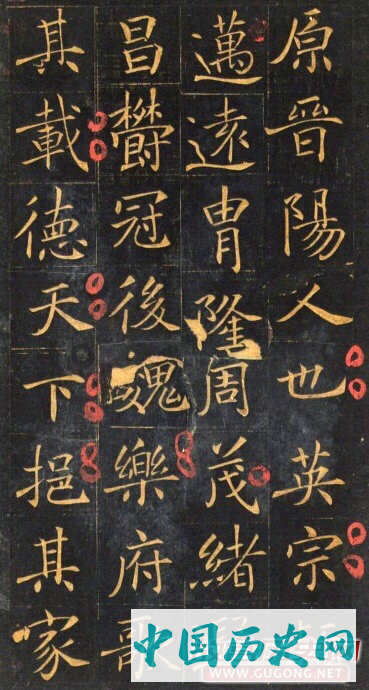 原晉陽人也英宗
邁遠胄隆周茂緒
昌欝冠後魏樂府歌
其載德天下挹其家
中国历史网
GUGONG.NET